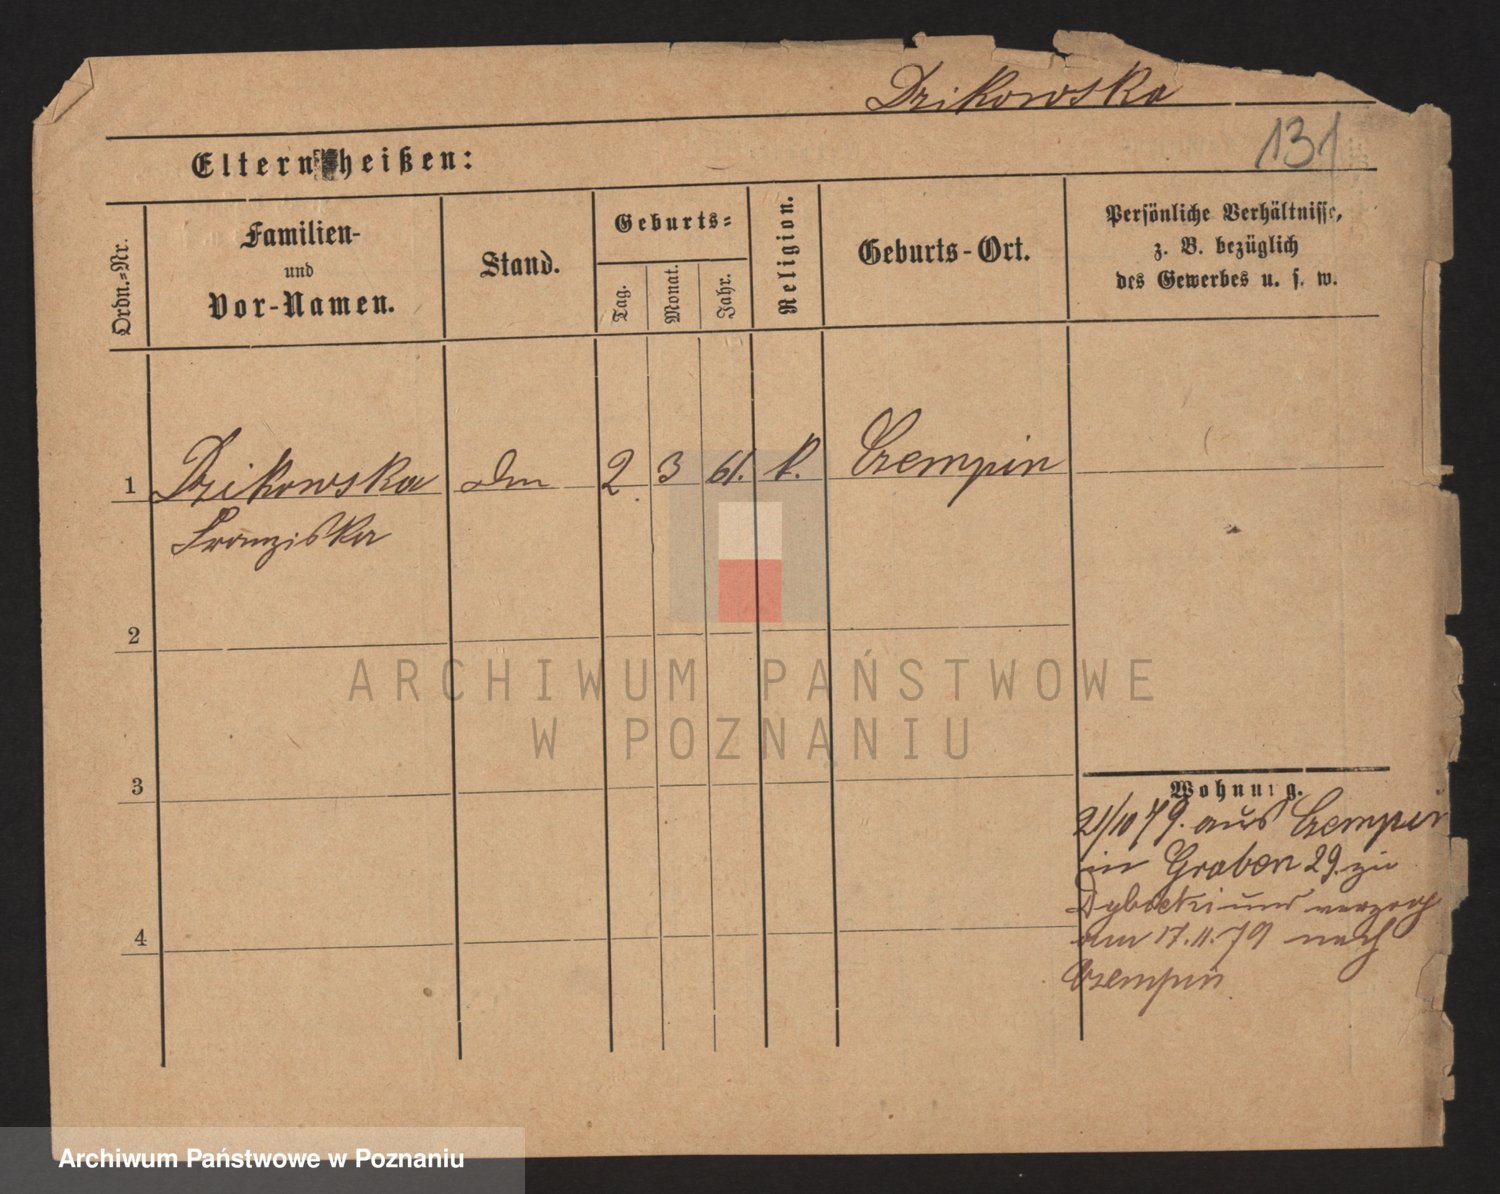 Dzikowska
131
Eltern heißen:
Ordn.-Nr.
Familien-
und
Vor-Namen.
Stand.
Geburts-
Tag.
Monat.
Jahr.
Religion.
Geburts-Ort.
Persönliche Verhältnisse,
z. B. bezüglich
des Gewerbes u. s. w.
1 Dzikowska 2. 3 61. k. Czempin
Franziska
2
3
4
Wohnung.
21/10 79. aus Czempin
in Graben 29. zu
und verzog
am 17.11.79 nach
Czempin
ARCHIWUM PAŃSTWOWE
W POZNANIU
Archiwum Państwowe w Poznaniu